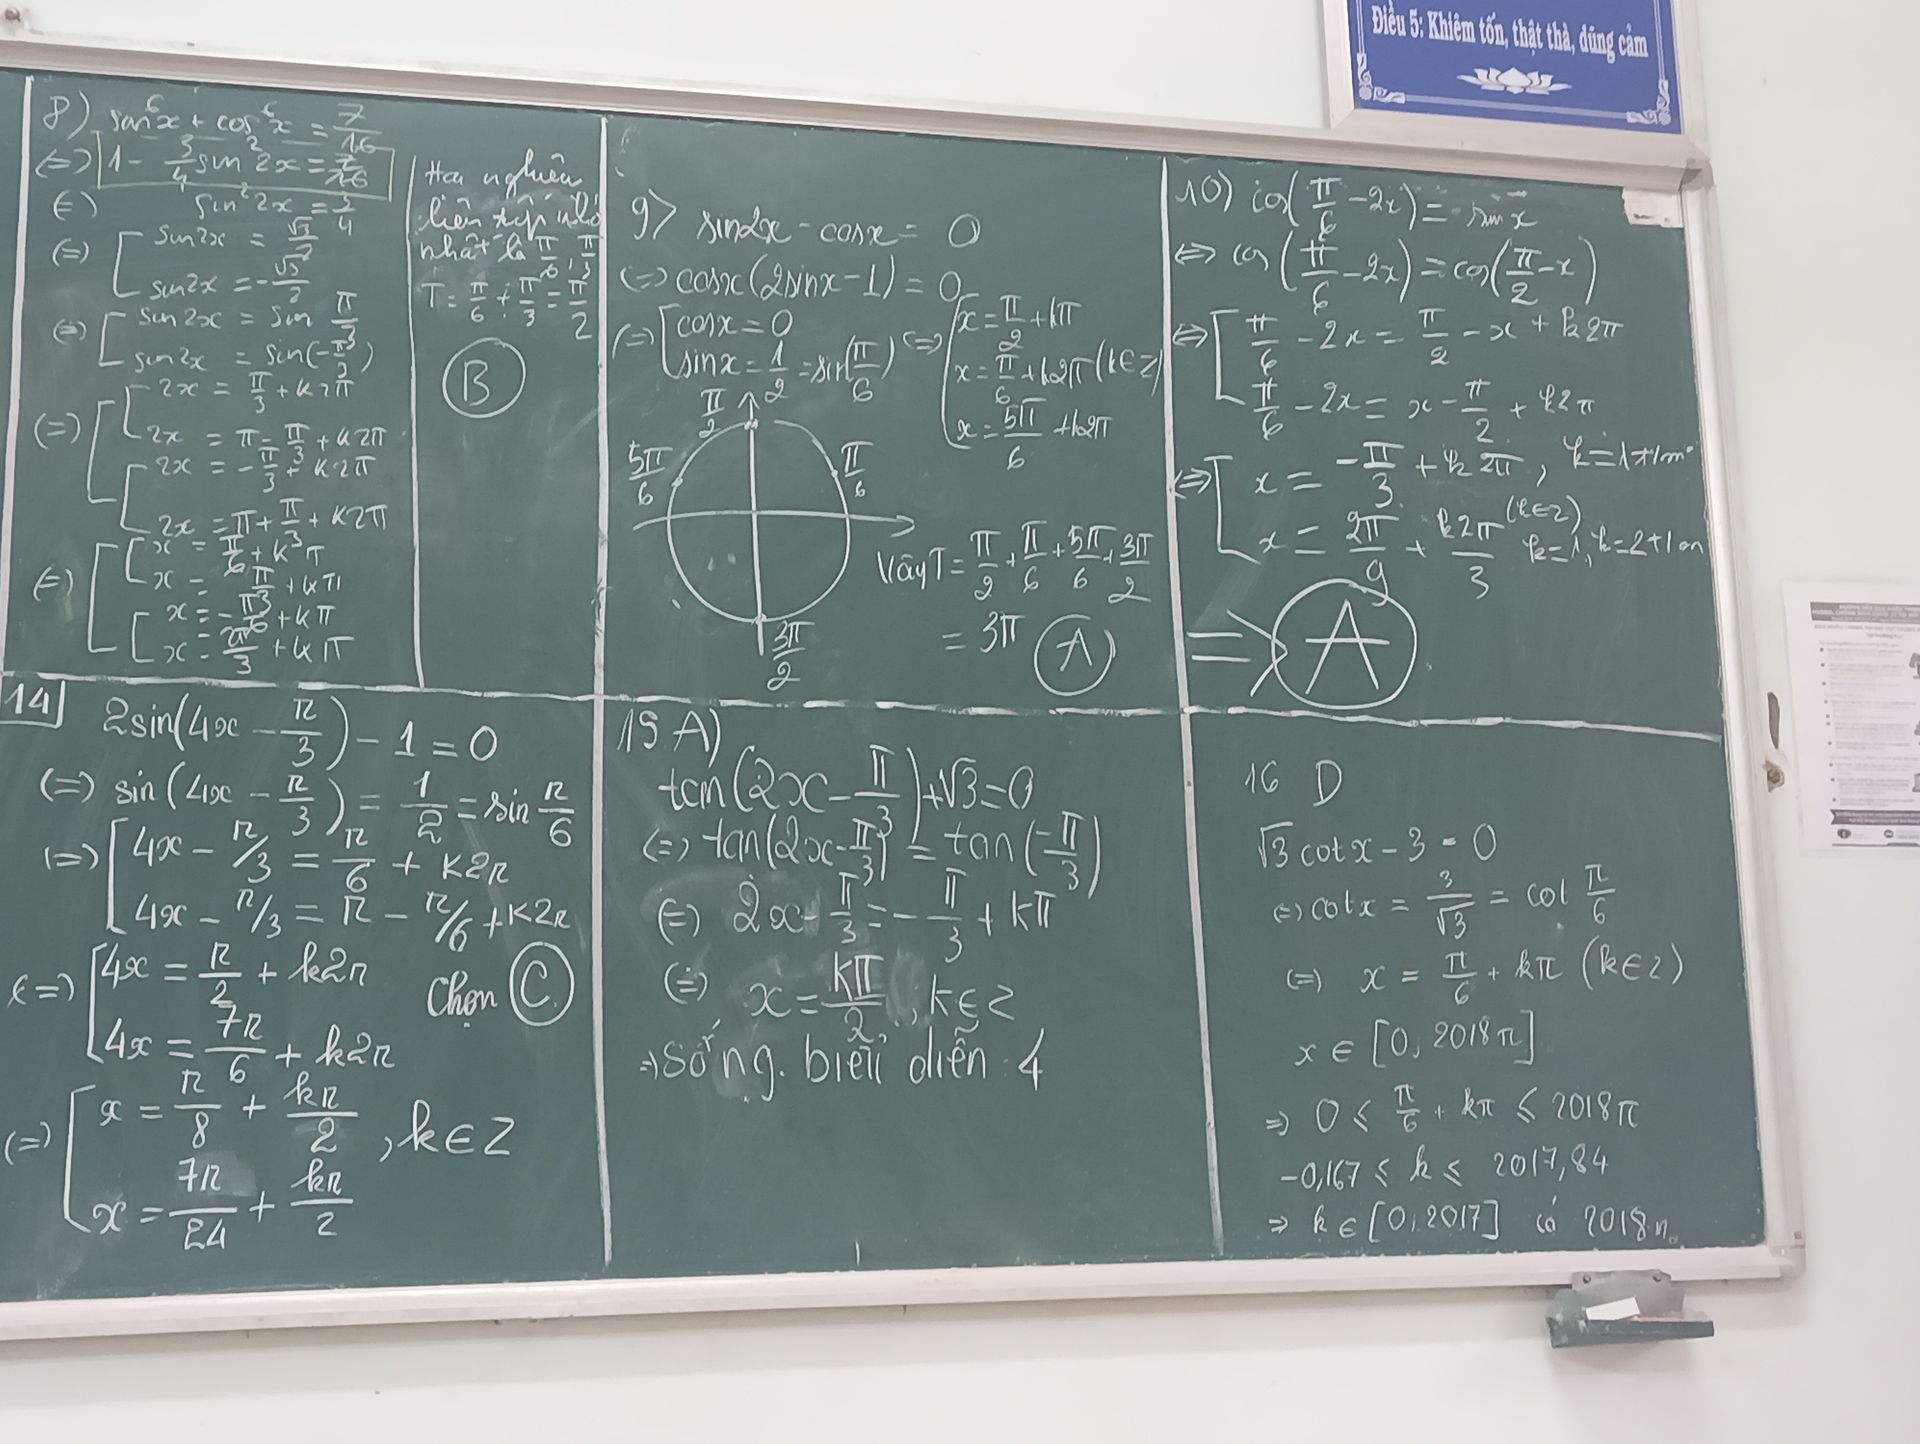 Điều 5: Khiêm tốn, thật thà, dũng cảm
8) sin⁶x + cos⁶x = 7/16
(=) 1 - 3/4 sin²2x = 7/16
(=) sin²2x = 3/4
(=) [ sin2x = √3/2
sin2x = -√3/2
(=) [ sin2x = sin π/3
sin2x = sin(-π/3)
(=) [ [ 2x = π/3 + k2π
2x = π - π/3 + k2π
[ 2x = -π/3 + k2π
2x = π + π/3 + k2π
(=) [ [ x = π/6 + kπ
x = π/3 + kπ
[ x = -π/6 + kπ
x = 2π/3 + kπ
Hai nghiệm
liên tiếp nhỏ
nhất là π/6, π/3
T = π/6 + π/3 = π/2
B
9> sin2x - cosx = 0
(=) cosx(2sinx - 1) = 0
(=) [ cosx = 0
sinx = 1/2 = sin(π/6)
(=) [ x = π/2 + kπ
x = π/6 + k2π (k∈Z)
x = 5π/6 + k2π
π/2
5π/6
π/6
3π/2
Vậy T = π/2 + π/6 + 5π/6 + 3π/2
= 3π
A
10) cos(π/6 - 2x) = sin x
⇔ cos(π/6 - 2x) = cos(π/2 - x)
⇔ [ π/6 - 2x = π/2 - x + k2π
π/6 - 2x = x - π/2 + k2π
⇔ [ x = -π/3 + k2π,
x = 2π/9 + k2π/3
(k∈Z)
=> A
14 2sin(4x - π/3) - 1 = 0
(=) sin(4x - π/3) = 1/2 = sin π/6
(=) [ 4x - π/3 = π/6 + k2π
4x - π/3 = π - π/6 + k2π
(=) [ 4x = π/2 + k2π
4x = 7π/6 + k2π
Chọn C.
(=) [ x = π/8 + kπ/2
x = 7π/24 + kπ/2
, k∈Z
15 A)
tan(2x - π/3) + √3 = 0
(=) tan(2x - π/3) = tan(-π/3)
(=) 2x - π/3 = -π/3 + kπ
(=) x = kπ/2, k∈Z
⇒ Số ng. biểu diễn : 4
16 D
√3 cotx - 3 = 0
(=) cotx = 3/√3 = cot π/6
(=) x = π/6 + kπ (k∈Z)
x ∈ [0; 2018π]
⇒ 0 ≤ π/6 + kπ ≤ 2018π
-0,167 ≤ k ≤ 2017,84
⇒ k ∈ [0; 2017] có 2018 n